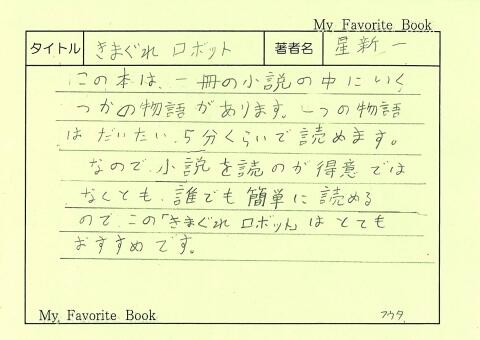 My Favorite Book
タイトル きまぐれ ロボット 著者名 星新一
この本は、一冊の小説の中にいく
つかの物語があります。一つの物語
は だいたい、5分くらいで読めます。
なので、小説を読のが得意では
なくとも、誰でも簡単に読める
ので、この「きまぐれ ロボット」は とても
おすすめです。
My Favorite Book